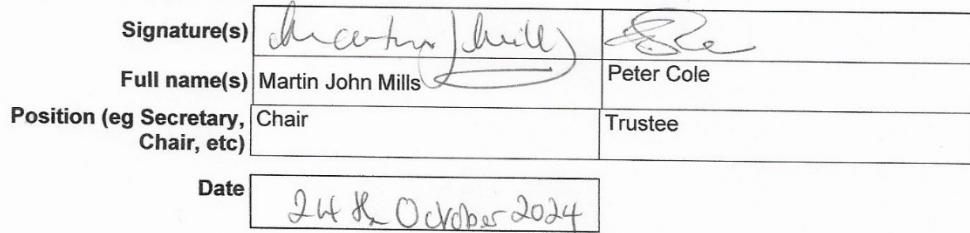 Signature(s) Martin J Mills
Full name(s) Martin John Mills Peter Cole
Position (eg Secretary, Chair Trustee
Chair, etc)
Date 24th October 2024